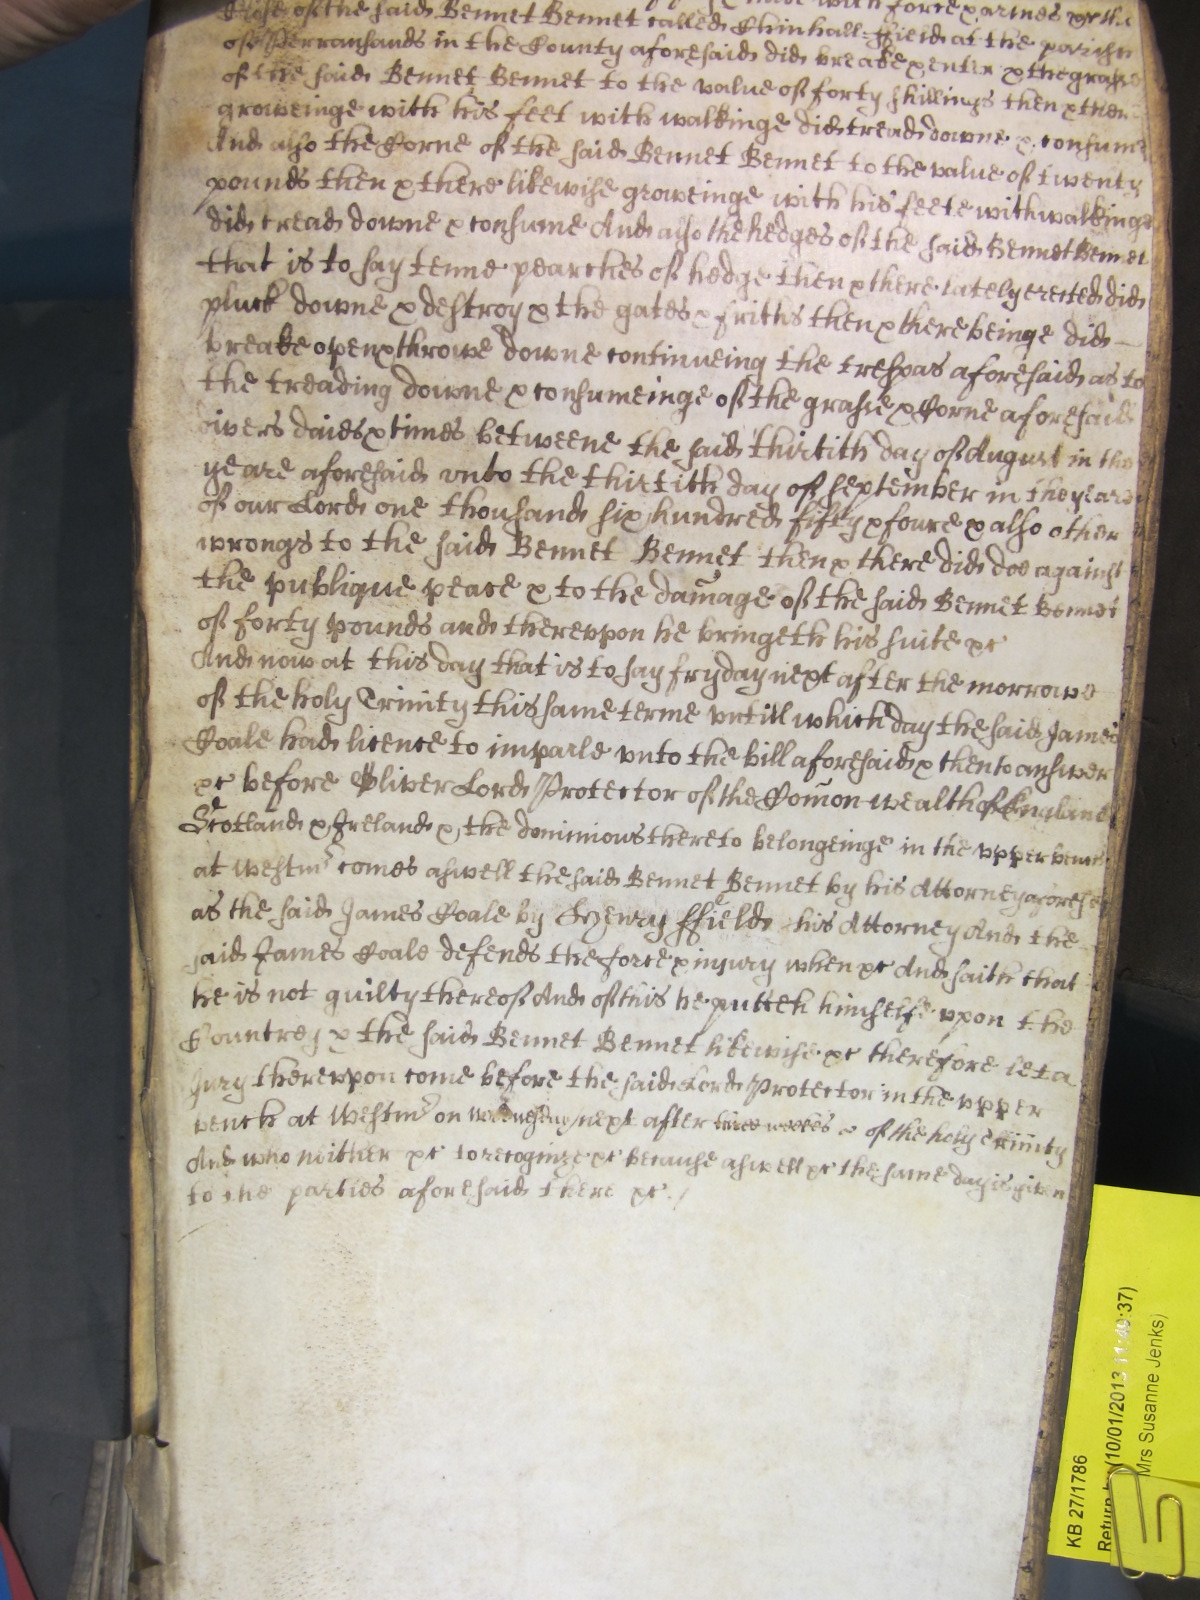 with force & armes &c the
Close of the said Bennet Bennet called Chinhall-ffield at the parishe
of Perransands in the County aforesaid did breake & enter & the grasse
of the said Bennet Bennet to the value of forty shillings then & there
groweinge with his feet with walkinge did tread downe & consume
And also the Corne of the said Bennet Bennet to the value of twenty
pounds then & there likewise groweinge with his feete with walkinge
did tread downe & consume And also the hedges of the said Bennet Bennet
that is to say tenne pearches of hedge then & there lately erected did
pluck downe & destroy & the gates & friths then & there beinge did
breake open & throwe downe continueing the trespas aforesaid as to
the treading downe & consumeinge of the grasse & Corne aforesaid
divers daies & times betweene the said thirtith day of August in the
yeare aforesaid unto the thirtith day of September in the yeare
of our Lord one thousand six hundred fifty & foure & also other
wrongs to the said Bennet Bennet then & there did doe against
the publique peace & to the dam̄age of the said Bennet Bennet
of forty pounds and thereuppon he bringeth his suite &c
And now at this day that is to say fryday next after the morrowe
of the holy Trinity this same terme untill which day the said James
Coale had licence to imparle unto the bill aforesaid & then to answer
&c before Oliver Lord Protector of the Com̄on-wealth of England
Scotland & Ireland & the dominions thereto belongeinge in the upper bench
at Westmr comes aswell the said Bennet Bennet by his Attorney aforesd
as the said James Coale by Henry ffield his Attorney And the
said James Coale defends the force & injury when &c And saith that
he is not guilty thereof And of this he putteth himselfe uppon the
Countrey & the said Bennet Bennet likewise &c therefore let a
Jury thereuppon come before the said Lord Protector in the upper
bench at Westmr on wednesday next after three weekes of the holy Trinity
And who neither &c to recognize &c because aswell &c the same day is given
to the parties aforesaid there &c /
KB 27/1786
Return by (10/01/2013 11:49:37)
Mrs Susanne Jenks)